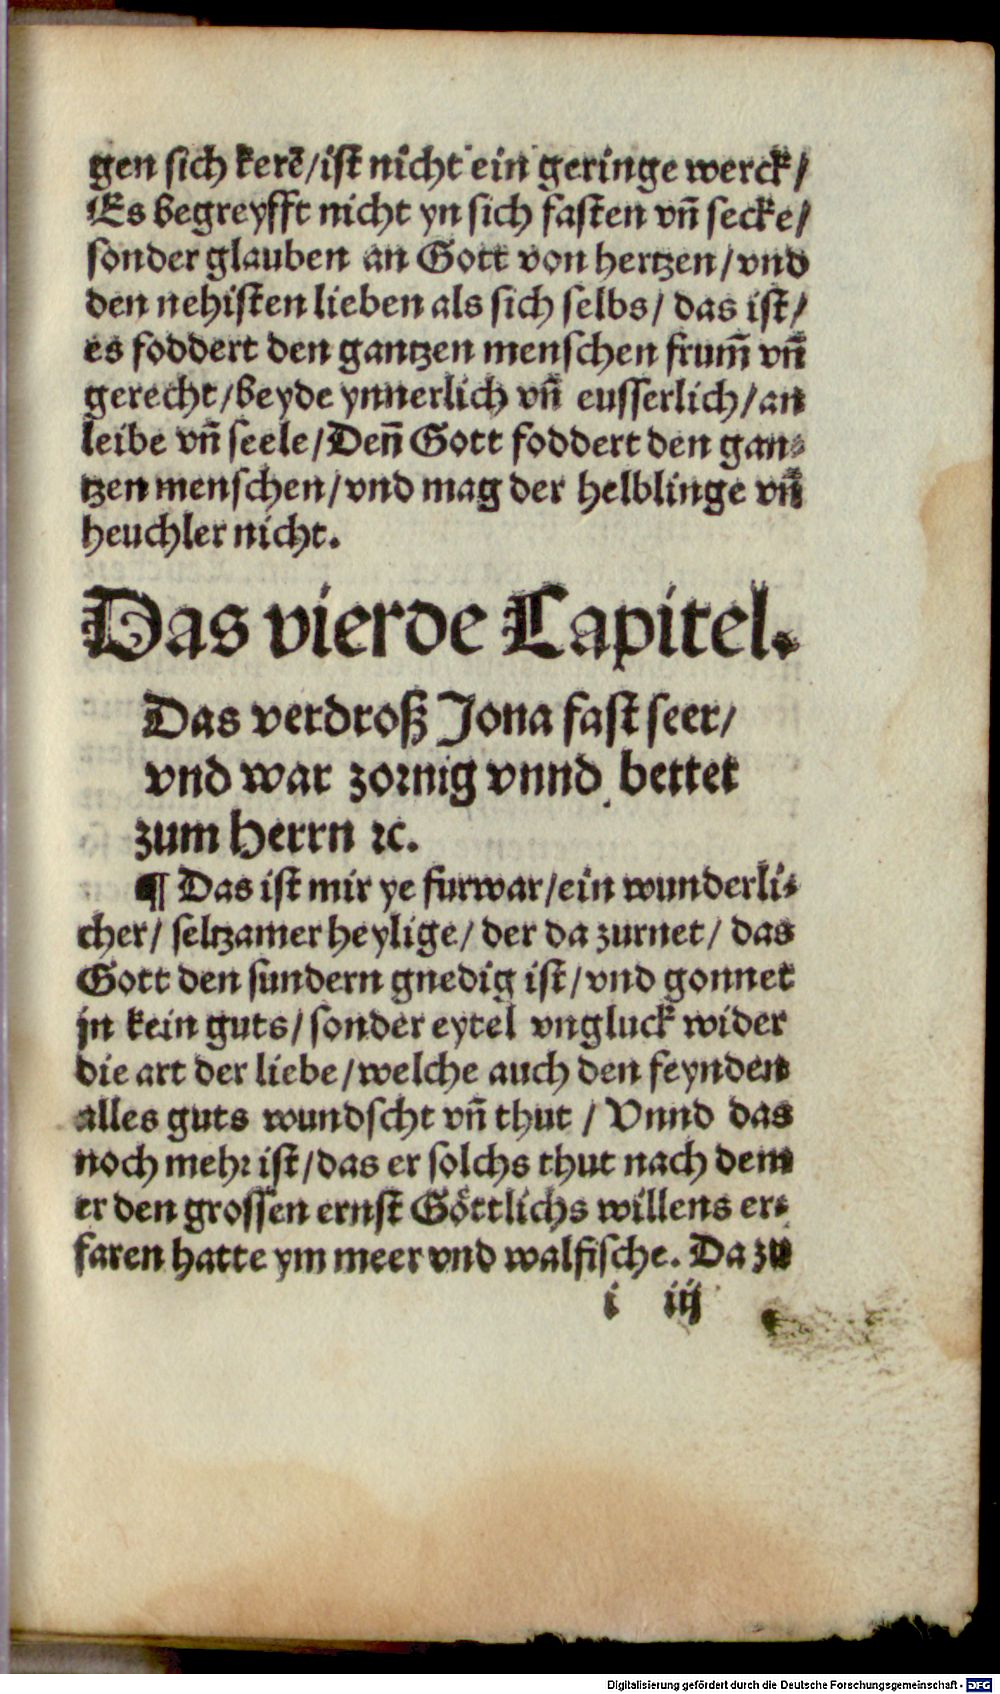 gen sich kerē/ist nicht ein geringe werck/
Es begreyfft nicht yn sich fasten vñ secke/
sonder glauben an Gott von hertzen/vnd
den nehisten lieben als sich selbs/ das ist/
es foddert den gantzen menschen frum̄ vñ
gerecht/beyde ynnerlich vñ eusserlich/an
leibe vñ seele/Den̄ Gott foddert den gan⸗
tzen menschen/vnd mag der helblinge vñ
heuchler nicht.
Das vierde Capitel.
Das verdroß Jona fast seer/
vnd war zornig vnnd bettet
zum Herrn ꝛc.
¶ Das ist mir ye furwar/ein wunderli⸗
cher/ seltzamer heylige/ der da zurnet/ das
Gott den sundern gnedig ist/vnd gonnet
jn kein guts/sonder eytel vngluck wider
die art der liebe/welche auch den feynden
alles guts wundscht vñ thut / Vnnd das
noch mehr ist/das er solchs thut nach dem
er den grossen ernst Göttlichs willens er⸗
faren hatte ym meer vnd walfische. Da zu
i iij
Digitalisierung gefördert durch die Deutsche Forschungsgemeinschaft - DFG